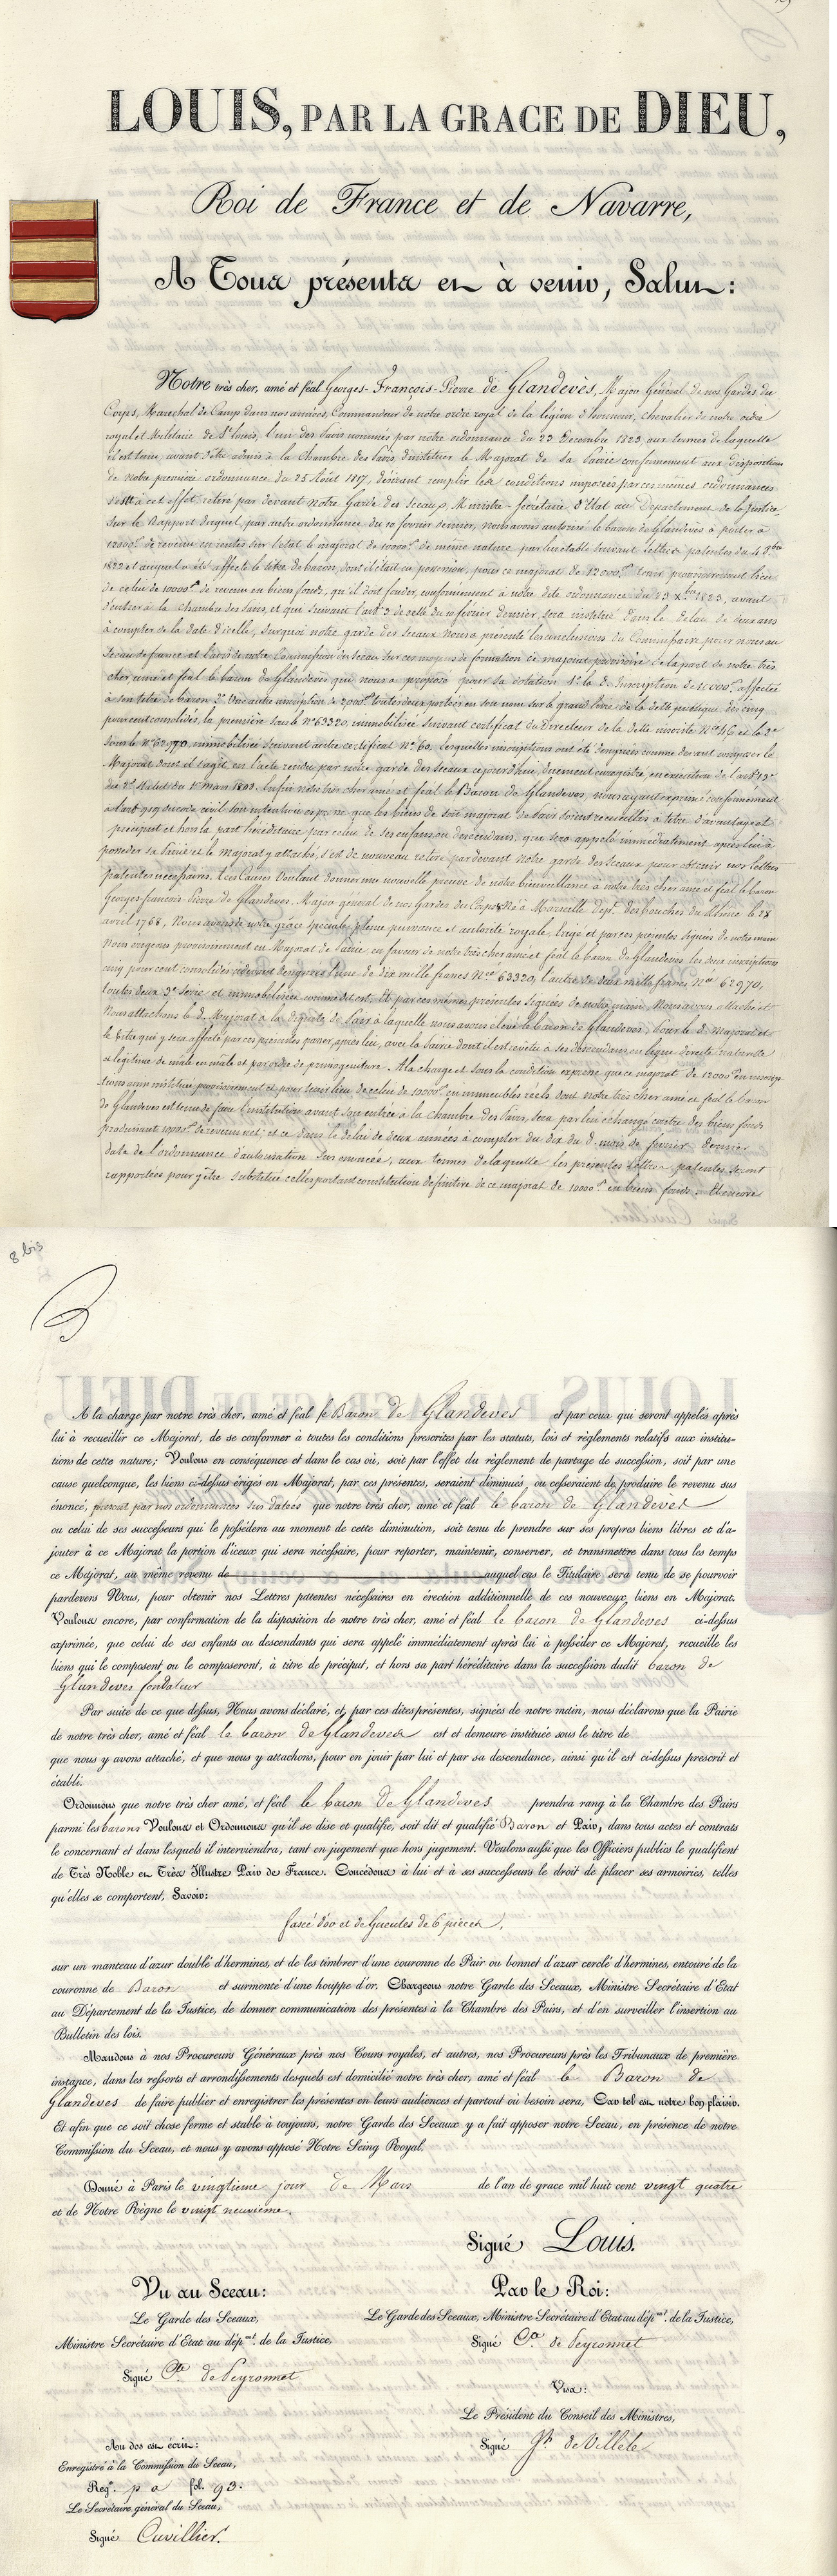 LOUIS, PAR LA GRACE DE DIEU,
Roi de France et de Navarre,
A Tous présents et à venir, Salut:
Notre très cher, amé et féal Georges-François-Pierre de Glandevès, Major Général de nos Gardes du
Corps, Maréchal de Camp dans nos armées, Commandeur de notre ordre royal de la légion d'honneur, chevalier de notre ordre
royal et Militaire de St Louis, l'un des Pairs nommés par notre ordonnance du 23 Décembre 1823, aux termes de laquelle
il est tenu, avant d'être admis à la Chambre des Pairs d'instituer le Majorat de sa Pairie conformément aux dispositions
de notre première ordonnance du 25 Août 1817, désirant remplir les conditions imposées par ces mêmes ordonnances
s'est à cet effet retiré par devant notre Garde des Sceaux, Ministre-Secrétaire d'Etat au Département de la Justice,
Sur le Rapport duquel, par autre ordonnance du 10 février dernier, nous avons autorisé le baron de Glandevès à porter à
12000f de revenu en rentes sur l'état le majorat de 10000f de même nature, par lui établi suivant lettres patentes du 4 9bre
1822 et auquel a été affecté le titre de baron, dont il était en possession, pour ce majorat de 12000f tenir provisoirement lieu
de celui de 10000f de revenu en biens fonds, qu'il doit fonder, conformément à notre dite ordonnance du 23 Xbre 1823, avant
d'entrer à la chambre des Pairs, et qui suivant l'art. 3 de celle du 10 février dernier sera institué dans le délai de deux ans
à compter de la date d'icelle, Surquoi notre garde des Sceaux nous a présenté les conclusions du Commissaire pour nous au
Sceau de france et l'avis de notre Commission du Sceau sur ces moyens de formation de majorat provisoire de la part de notre très
cher, amé et féal le baron de Glandevès qui nous a proposé pour sa dotation 1° la de Inscription de 10000f affectée
à son titre de baron 2° Une autre inscription de 2000f toutes deux portées en son nom sur le grand livre de la dette publique, des cinq
pour cent consolidés, la première sous le No 63320, immobilisée suivant certificat du Directeur de la dette inscrite No 46, et la 2e
sous le No 62970, immobilisée suivant autre certificat No 60, lesquelles inscriptions ont été désignées comme devant composer le
Majorat dont il s'agit, en l'acte rendu par notre garde des Sceaux cejourd'hui, duement enregistré, en exécution de l'art. 13
du 2e Statut du 1er Mars 1808. Enfin notre très cher amé et féal le Baron de Glandevès, nous ayant exprimé conformément
à l'art. 919 du code civil son intention expresse que les biens de son majorat de Pairs soient recueillis à titre d'avantage et
préciput et hors la part héréditaire par celui de ses enfans ou descendans, qui sera appelé immédiatement après lui à
posséder sa Pairie et le Majorat y attaché, s'est de nouveau retiré pardevant notre garde des Sceaux pour obtenir nos lettres
patentes nécessaires. A ces Causes Voulant donner une nouvelle preuve de notre bienveillance à notre très cher amé et féal le baron
Georges-françois-Pierre de Glandevès, Major général de nos Gardes du Corps Né à Marseille dépt. des bouches du Rhône le 28
avril 1768, Nous avons de notre grâce spéciale, pleine puissance et autorité royale, érigé et par ces présentes signées de notre main
Nous érigeons provisoirement en Majorat de Pairie, en faveur de notre très cher amé et féal le baron de Glandevès les deux inscriptions
cinq pour cent consolidés cidevant désignées l'une de dix mille francs No 63320, l'autre de deux mille francs No 62970,
toutes deux 3e Serie et immobilisées comme dit est, Et par ces mêmes présentes signées de notre main, Nous avons attaché et
Nous attachons le d. Majorat à la dignité de Pair à laquelle nous avons élevé le baron de Glandevès, pour le d. Majorat et
le titre qui y sera affecté par ces présentes passer, après lui, avec la Pairie dont il est revêtu à ses descendans en ligne directe, naturelle
et légitime de mâle en mâle et par ordre de primogéniture. A la charge et sous la condition expresse que ce majorat de 12000f en inscrip-
tions ainsi institué provisoirement et pour tenir lieu de celui de 10000f en immeubles réels dont notre très cher amé et féal le baron
de Glandevès est tenu de faire l'institution avant son entrée à la chambre des Pairs, sera par lui échangé contre des biens fonds
produisant 10000f de revenu net; et ce dans le délai de deux années à compter du dix du d. mois de février dernier
date de l'ordonnance d'autorisation sus énoncée, aux termes de laquelle les présentes Lettres patentes seront
rapportées pour y être substitué celles portant constitution définitive de ce majorat de 10000f en biens fonds. Et encore
8 bis
A la charge par notre très cher, amé et féal le Baron de Glandevès et par ceux qui seront appelés après
lui à recueillir ce Majorat, de se conformer à toutes les conditions prescrites par les statuts, lois et règlements relatifs aux institu-
tions de cette nature; Voulons en conséquence et dans le cas où, soit par l'effet du règlement de partage de succession, soit par une
cause quelconque, les biens ci-dessus érigés en Majorat, par ces présentes, seraient diminués, ou cesseraient de produire le revenu sus
énoncé, prescrit par nos ordonnances sus datées que notre très cher, amé et féal le baron de Glandevès
ou celui de ses successeurs qui le possédera au moment de cette diminution, soit tenu de prendre sur ses propres biens libres et d'a-
jouter à ce Majorat la portion d'iceux qui sera nécessaire, pour reporter, maintenir, conserver, et transmettre dans tous les temps
ce Majorat, au même revenu de auquel cas le Titulaire sera tenu de se pourvoir
pardevers Nous, pour obtenir nos Lettres patentes nécessaires en érection additionnelle de ces nouveaux biens en Majorat.
Voulons encore, par confirmation de la disposition de notre très cher, amé et féal le baron de Glandevès ci-dessus
exprimée, que celui de ses enfants ou descendants qui sera appelé immédiatement après lui à posséder ce Majorat, recueille les
biens qui le composent ou le composeront, à titre de préciput, et hors sa part héréditaire dans la succession dudit baron de
Glandevès fondateur
Par suite de ce que dessus, Nous avons déclaré, et, par ces dites présentes, signées de notre main, nous déclarons que la Pairie
de notre très cher, amé et féal le baron de Glandevès est et demeure instituée sous le titre de
que nous y avons attaché, et que nous y attachons, pour en jouir par lui et par sa descendance, ainsi qu'il est ci-dessus prescrit et
établi.
Ordonnons que notre très cher amé, et féal le baron de Glandevès prendra rang à la Chambre des Pairs
parmi les barons Voulons et Ordonnons qu'il se dise et qualifie, soit dit et qualifié Baron et Pair, dans tous actes et contrats
le concernant et dans lesquels il interviendra, tant en jugement que hors jugement. Voulons aussi que les Officiers publics le qualifient
de Très Noble et Très Illustre Pair de France. Concédons à lui et à ses successeurs le droit de placer ses armoiries, telles
qu'elles se comportent, Savoir:
fascé d'or et de Gueules de 6 pièces,
sur un manteau d'azur doublé d'hermines, et de les timbrer d'une couronne de Pair ou bonnet d'azur cerclé d'hermines, entouré de la
couronne de Baron et surmonté d'une houppe d'or. Chargeons notre Garde des Sceaux, Ministre Secrétaire d'Etat
au Département de la Justice, de donner communication des présentes à la Chambre des Pairs, et d'en surveiller l'insertion au
Bulletin des lois.
Mandons à nos Procureurs Généraux près nos Cours royales, et autres, nos Procureurs près les Tribunaux de première
instance, dans les ressorts et arrondissements desquels est domicilié notre très cher, amé et féal le Baron de
Glandevès de faire publier et enregistrer les présentes en leurs audiences et partout où besoin sera, Car tel est notre bon plaisir.
Et afin que ce soit chose ferme et stable à toujours, notre Garde des Sceaux y a fait apposer notre Sceau, en présence de notre
Commission du Sceau, et nous y avons apposé Notre Seing Royal.
Donné à Paris le vingtième jour de Mars de l'an de grace mil huit cent vingt quatre
et de Notre Règne le vingt neuvième.
Signé Louis.
Vu au Sceau:
Le Garde des Sceaux,
Ministre Secrétaire d'Etat au dépmt. de la Justice,
Signé Cte de Peyronnet
Par le Roi:
Le Garde des Sceaux, Ministre Secrétaire d'Etat au dépmt. de la Justice,
Signé Cte de Peyronnet
Visa:
Le Président du Conseil des Ministres,
Signé Jh de Villèle
Au dos est écrit:
Enregistré à la Commission du Sceau,
Regre. p a fol. 93.
Le Secrétaire général du Sceau,
Signé Cuvillier.